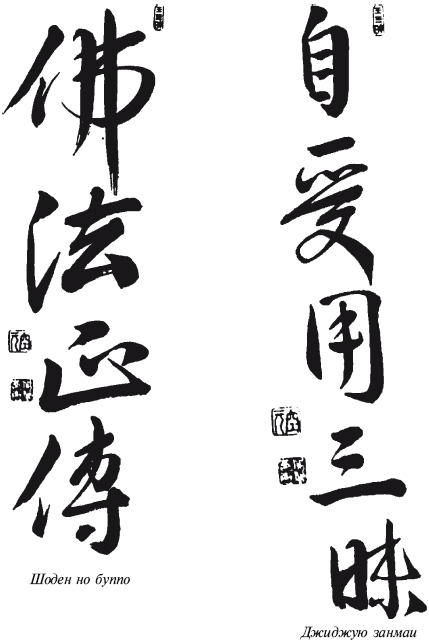 佛法正傳
Шоден но буппо
自受用三昧
Джиджую занмаи